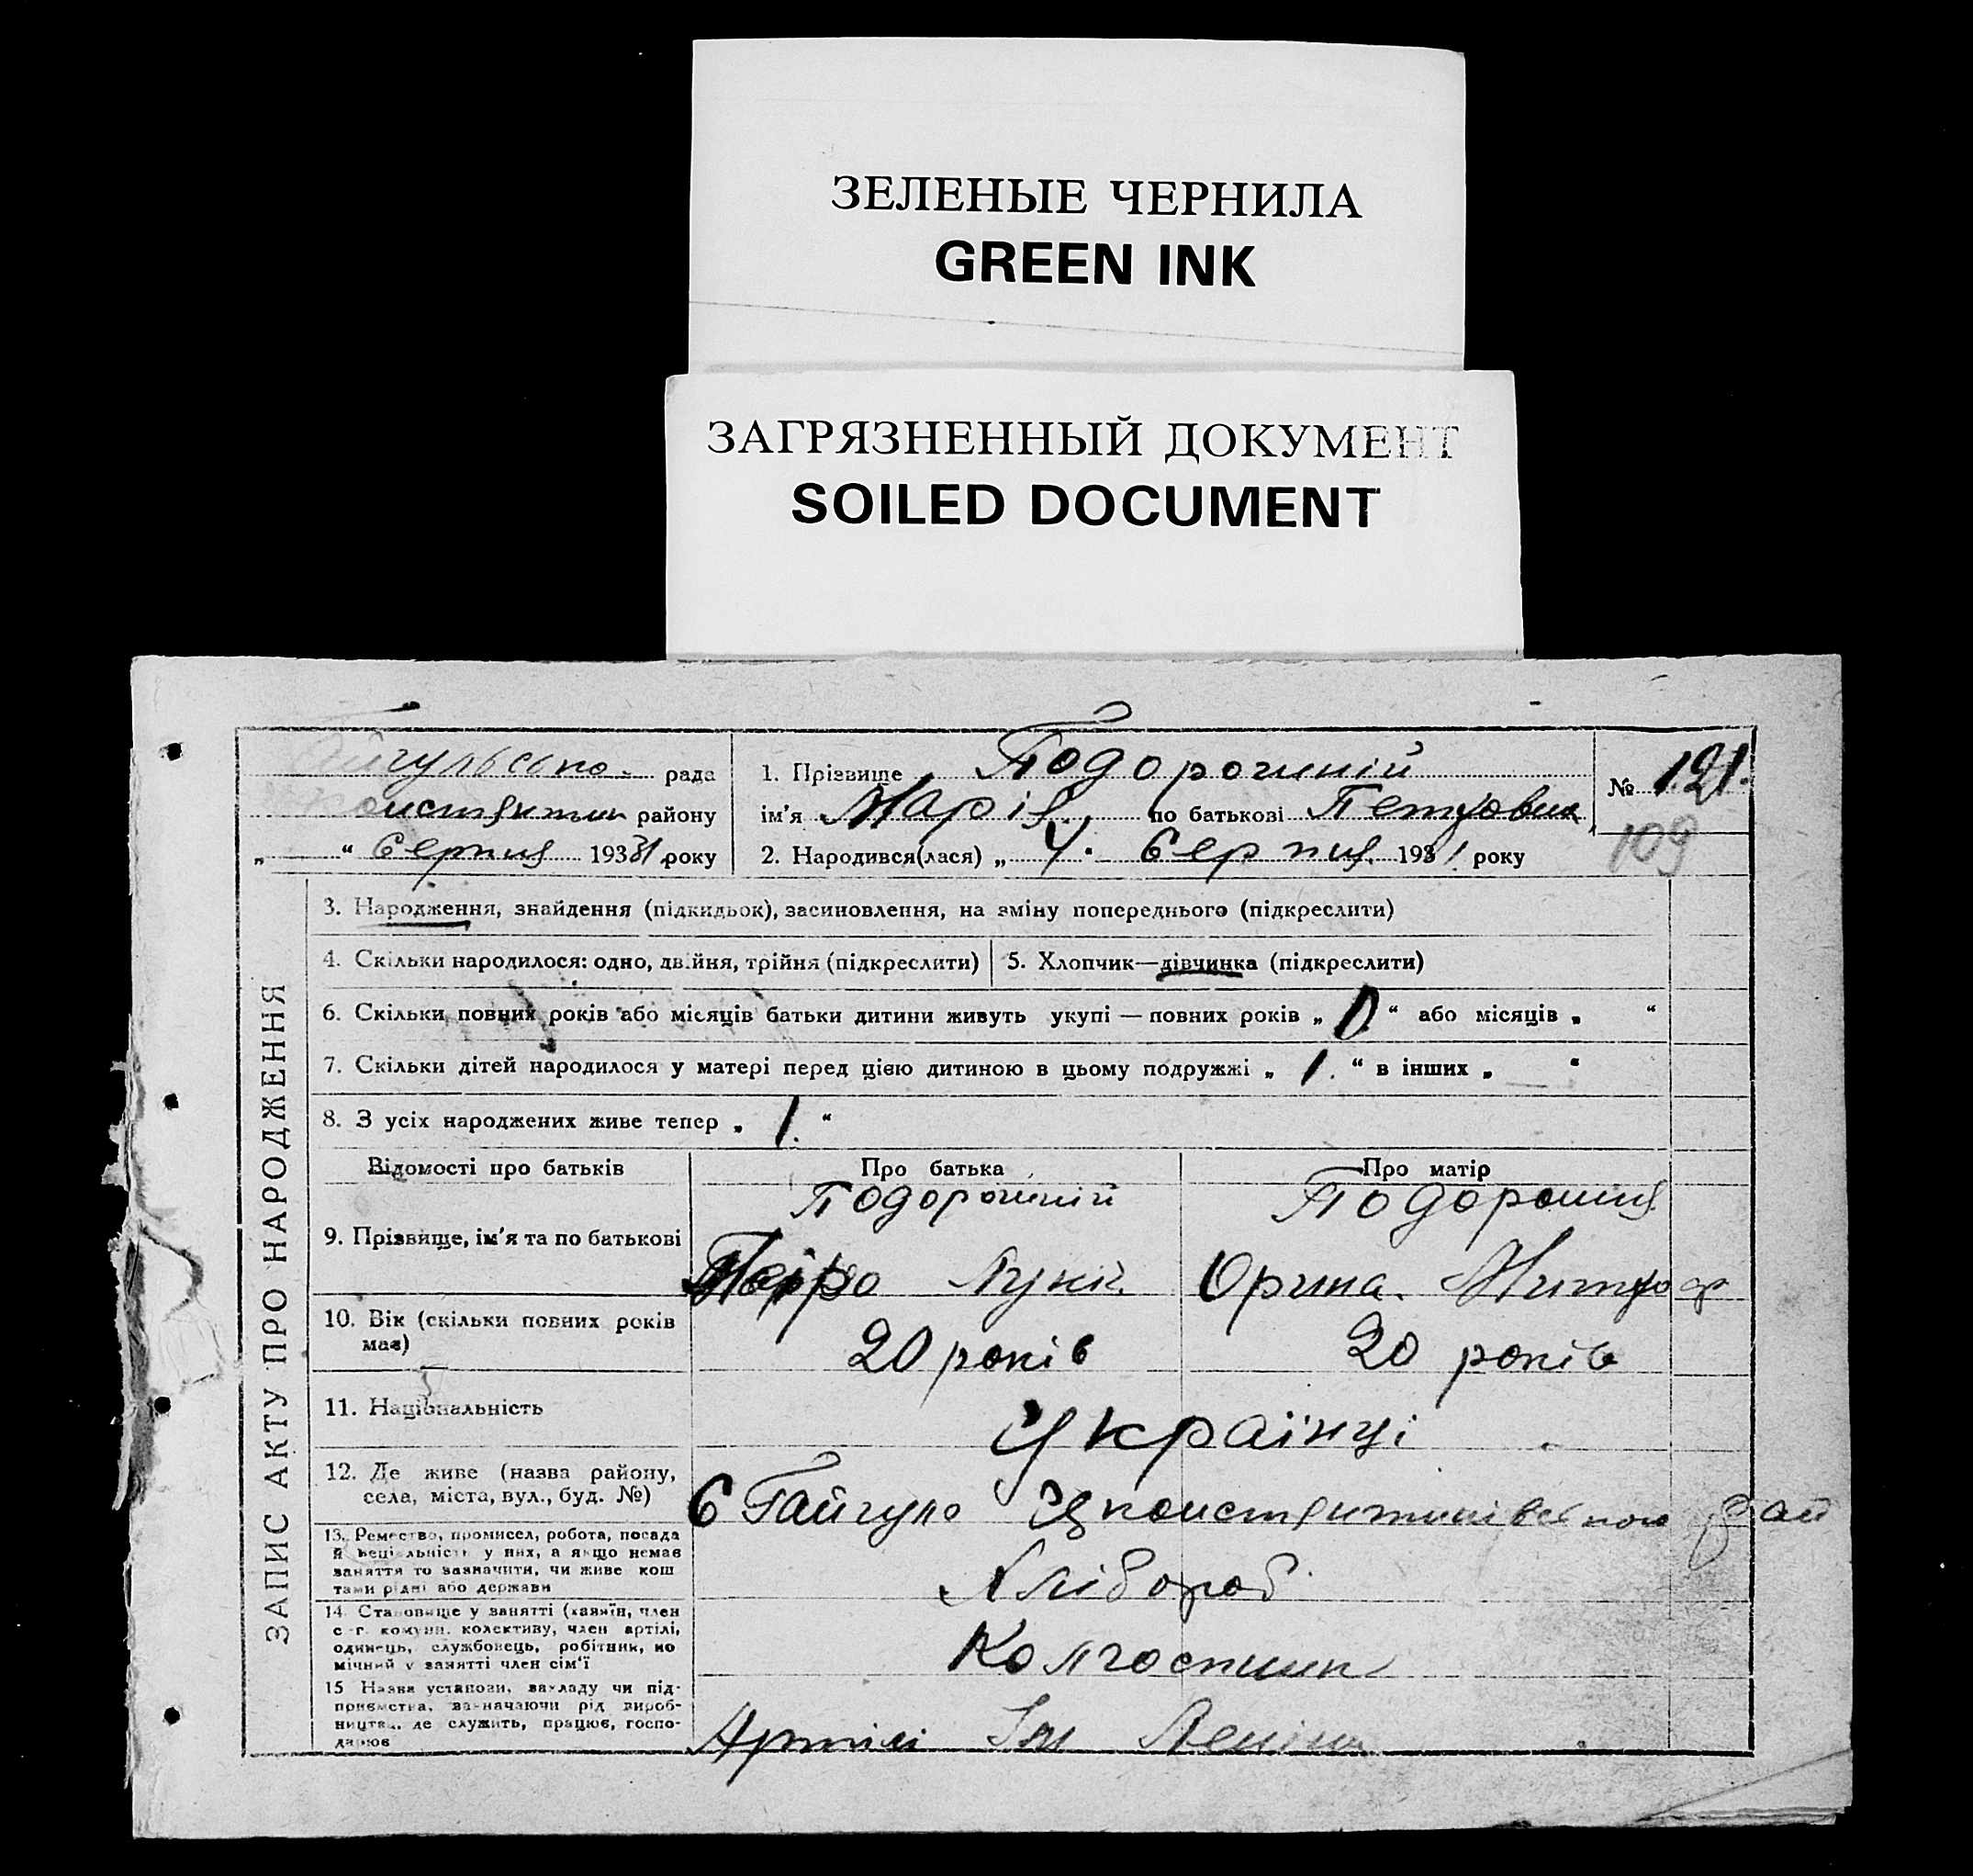 ЗЕЛЕНЫЕ ЧЕРНИЛА
GREEN INK
ЗАГРЯЗНЕННЫЙ ДОКУМЕНТ
SOILED DOCUMENT
рада
району
„ “ Серпня 1931 року
1. Прізвище Подорожній
ім'я Марія по батькові Петровна
2. Народився(лася) „ 4. Серпня 1931 року
№ 121.
109
ЗАПИС АКТУ ПРО НАРОДЖЕННЯ
3. Народження, знайдення (підкидьок), засиновлення, на зміну попереднього (підкреслити)
4. Скільки народилося: одно, двійня, трійня (підкреслити)
5. Хлопчик—дівчинка (підкреслити)
6. Скільки повних років або місяців батьки дитини живуть укупі — повних років „ “ або місяців „ “
7. Скільки дітей народилося у матері перед цією дитиною в цьому подружжі „ 1. “ в інших „ “
8. З усіх народжених живе тепер „ 1. “
Відомості про батьків
Про батька
Про матір
9. Прізвище, ім'я та по батькові
Подорожній
Петро Лукіч
Подорожня
Орина. Митроф
10. Вік (скільки повних років має)
20 років
20 років
11. Національність
Українці
12. Де живе (назва району,
села, міста, вул., буд. №)
С Гайгуло рай
13. Ремество, промисел, робота, посада
й спеціяльність у них, а якщо немає
заняття то зазначити, чи живе кош
тами рідні або держави
Хлібороб
14. Становище у занятті (хазяїн, член
с-г. комуни, колективу, член артілі,
одинець, службовець, робітник, по
мічний у занятті член сім'ї
Колгоспник
15 Назва установи, закладу чи під-
приємства, зазначаючи рід вироб-
ництва, де служить, працює, госпо-
дарює
Артілі Ім Леніна